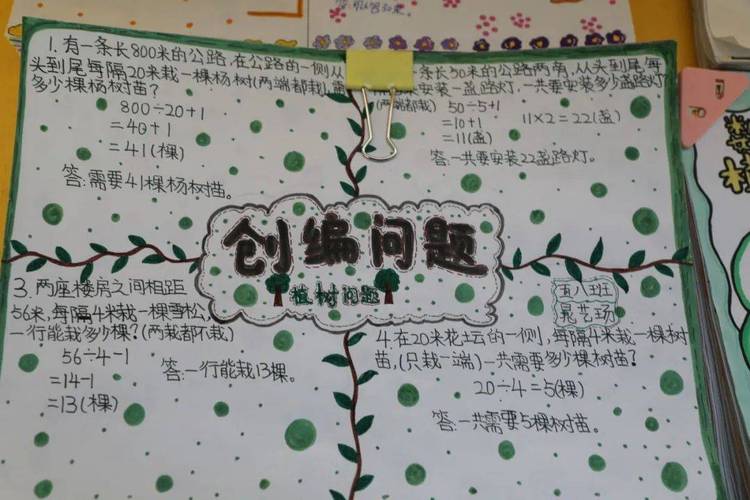 1.有一条长800米的公路,在公路的一侧从
头到尾每隔20米栽一棵杨树(两端都栽),需
多少棵杨树苗?
800÷20+1
=40+1
=41(棵)
答:需要41棵杨树苗。
条长50米的公路两旁,从头到尾每
安装一盏路灯,一共要安装多少盏路灯?
(两端都栽)
50÷5+1
=10+1
=11(盏)
11×2=22(盏)
答:一共要安装22盏路灯。
创编问题
植树问题
五八班
3.两座楼房之间相距
56米,每隔4米栽一棵雪松,
一行能栽多少棵?(两栽都不栽)
56÷4-1
=14-1
=13(棵)
答:一行能栽13棵。
4.在20米花坛的一侧,每隔4米栽一棵树
苗,(只栽一端)一共需要多少棵树苗?
20÷4=5(棵)
答:一共需要5棵树苗。